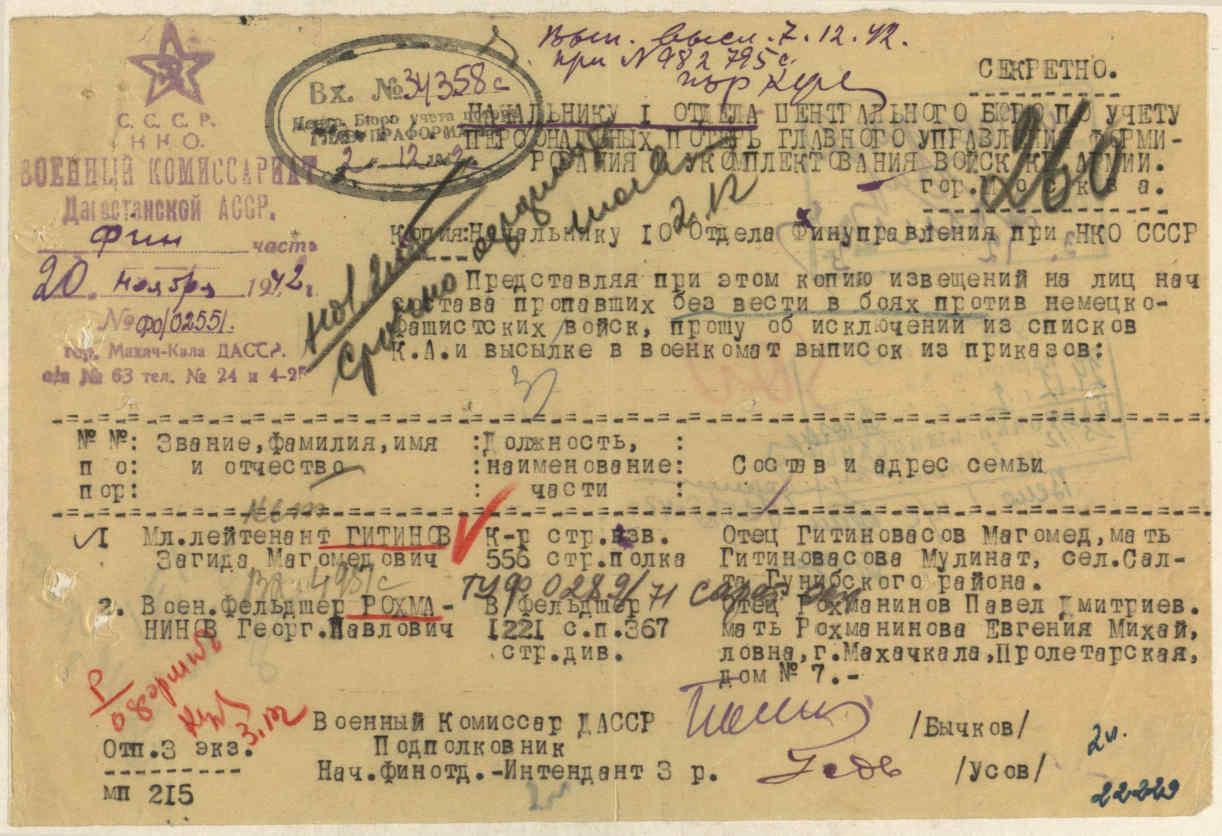 Вып. высл. 7.12.42.
при № 982795с
СЕКРЕТНО.
С. С. С. Р.
Н К О.
ВОЕННЫЙ КОМИССАРИАТ
Дагестанской АССР.
фин часть
20. ноября 1942 г.
№ фо/02551.
гор. Махач-Кала ДАССР.
п/я № 63 тел. № 24 и 4-2
Вх. № 34358с
Центр. Бюро учета потерь
ГЛАВУПРАФОРМ
2 12 1942
НАЧАЛЬНИКУ I ОТДЕЛА ЦЕНТРАЛЬНОГО БЮРО ПО УЧЕТУ
ПЕРСОНАЛЬНЫХ ПОТЕРЬ ГЛАВНОГО УПРАВЛЕНИЯ ФОРМИ-
РОВАНИЯ И УКОМПЛЕКТОВАНИЯ ВОЙСК КР.АРМИИ.
гор. Москва.
260
2.12
срочно
Копия: Начальнику 10 Отдела Финуправления при НКО СССР
Представляя при этом копию извещений на лиц нач
состава пропавших без вести в боях против немецко-
фашистских войск, прошу об исключении из списков
К.А. и высылке в военкомат выписок из приказов:
№ №: Звание, фамилия, имя :Должность, :
п о: и отчество :наименование: Состав и адрес семьи
пор: : части :
I Мл.лейтенант ГИТИНОВ К-р стр.взв. Отец Гитиновасов Магомед, мать
Загида Магомедович 556 стр.полка Гитиновасова Мулинат, сел.Сал-
та Гунибского района.
Вх. 4951с
ТУФ 0289/71
2. Воен.Фельдшер РОХМА- В/Фельдшер Отец Рохманинов Павел Дмитриев.
НИНОВ Георг.Павлович 1221 с.п.367 мать Рохманинова Евгения Михай,
стр.див. ловна, г.Махачкала, Пролетарская,
дом № 7.-
3.12
Военный Комиссар ДАССР /Бычков/
Подполковник
Отп.3 экз.
Нач.финотд.-Интендант 3 р. /Усов/
мп 215
2л.
22229